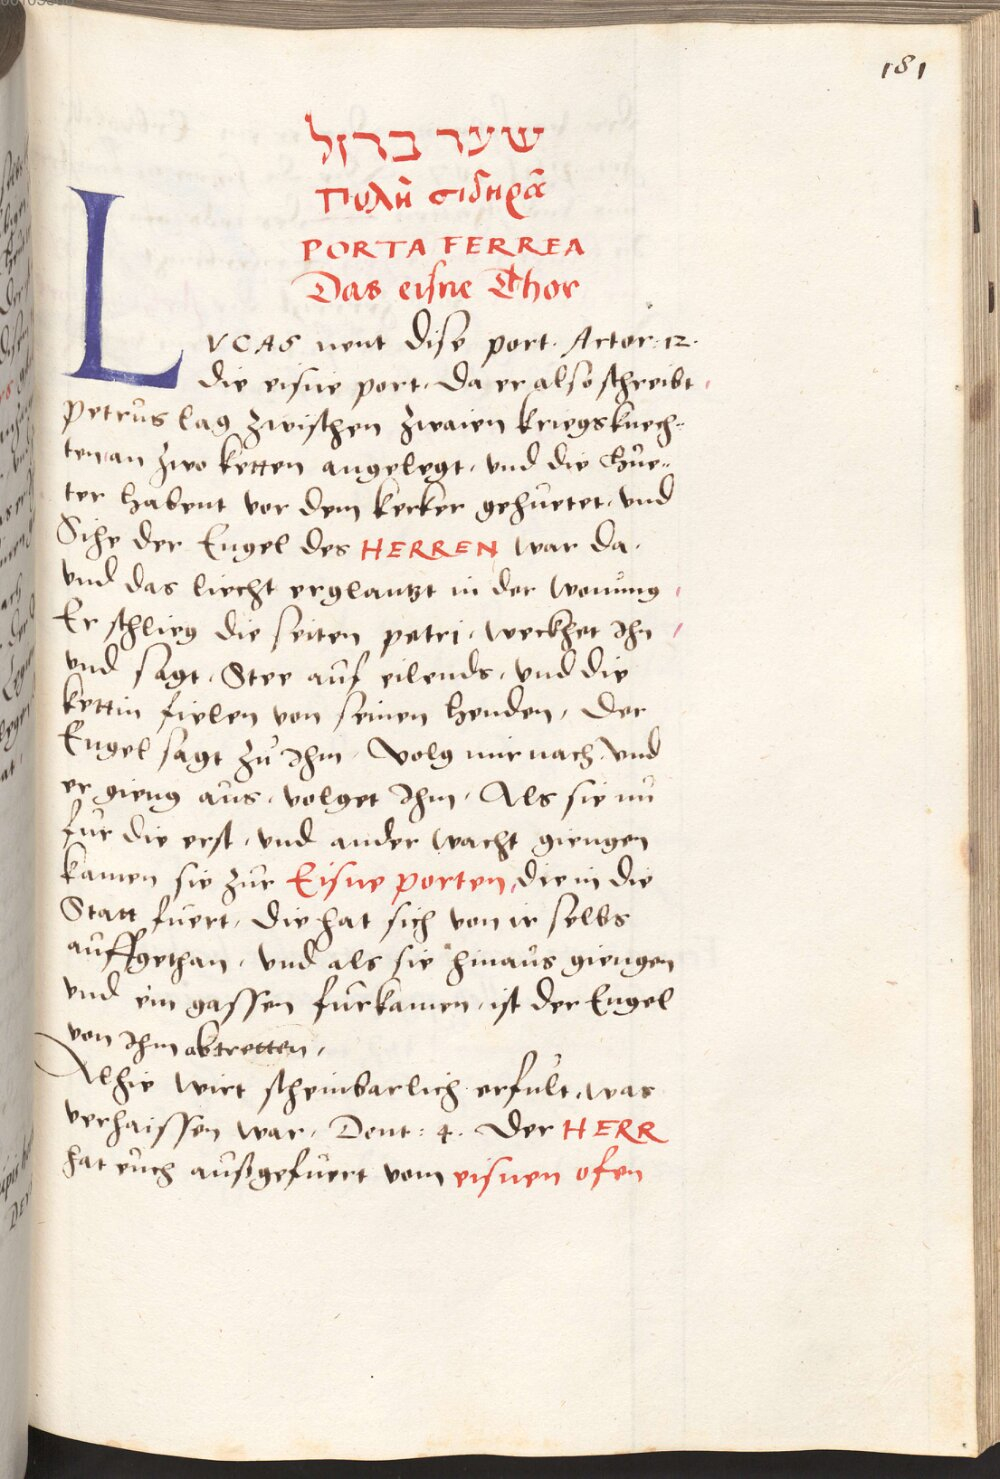 181
שער ברזל
πυλὴ σιδηρᾶ
PORTA FERREA
Das eisne Thor
LVCAS nent dise port. Actor: 12.
die eisne port. da er also schreibt,
Petrus lag zwischen zwaien kriegsknech-
ten an zwo ketten angelegt, vnd die hüe-
ter habent vor dem kerker gehuetet, vnd
Sihe der Engel des HERREN war da,
vnd das liecht erglantzt in der wonung,
Er schlieg die seiten petri, weckhet Ihn,
vnd sagt, Stee auf eilends, vnd die
kettin fielen von seinen henden, der
Engel sagt zu Ihm, Volg mir nach, vnd
er gieng aus, volget Ihm, Als sie nu
fur die erst, vnd ander wacht giengen
kamen sie zur Eisne porten, die in die
Statt fuert, die hat sich von ir selbs
auffgethan, vnd als sie hinaus giengen
vnd ein gassen furkamen, ist der Engel
von Ihm abtretten,
Alhie wirt scheinbarlich erfult, was
verhaissen war, Deut: 4. Der HERR
hat euch außgefuert vom eisnen ofen